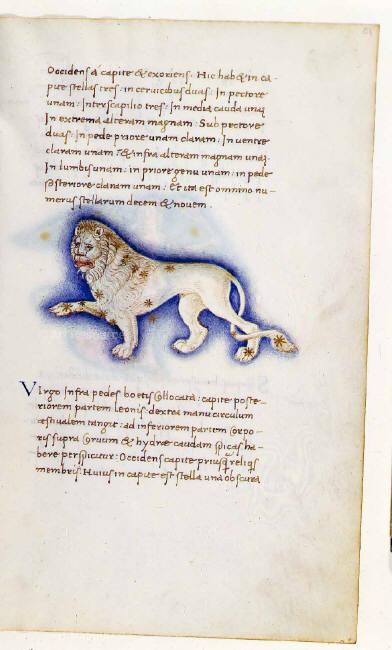 Occidens á capite & exoriens. Hic hab& in ca
pite stellas tres: in cervicibus duas: In pectore
unam: Interscapilio tres: In media cauda unā
In extrema alteram magnam: Sub pectore
duas: In pede priore unam claram: In ventre
claram unam & infra alteram magnam unā:
In lumbis unam: in priore genu unam: in pede
posteriore claram unam: Et ita est omnino nu
merus stellarum decem & novem.
Virgo Infra pedes boetis collocata: capite poste
riorem partem leonis: dextra manu circulum
æstivalem tangit: ad inferiorem partem corpo
ris supra corvum & hydræ caudam spicas ha
bere perspicitur: Occidens capite prius q̄ reliqs
membris: Huius in capite est stella una obscura